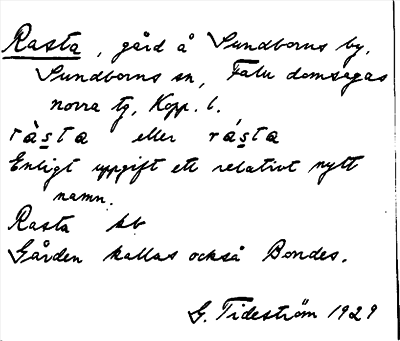 Rasta, gård å Sundborns by,
Sundborns sn, Falu domsagas
norra tg, Kopp. l.
ràsta eller rásta
Enligt uppgift ett relativt nytt
namn.
Rasta kb
Gården kallas också Bondes.
G. Tideström 1929